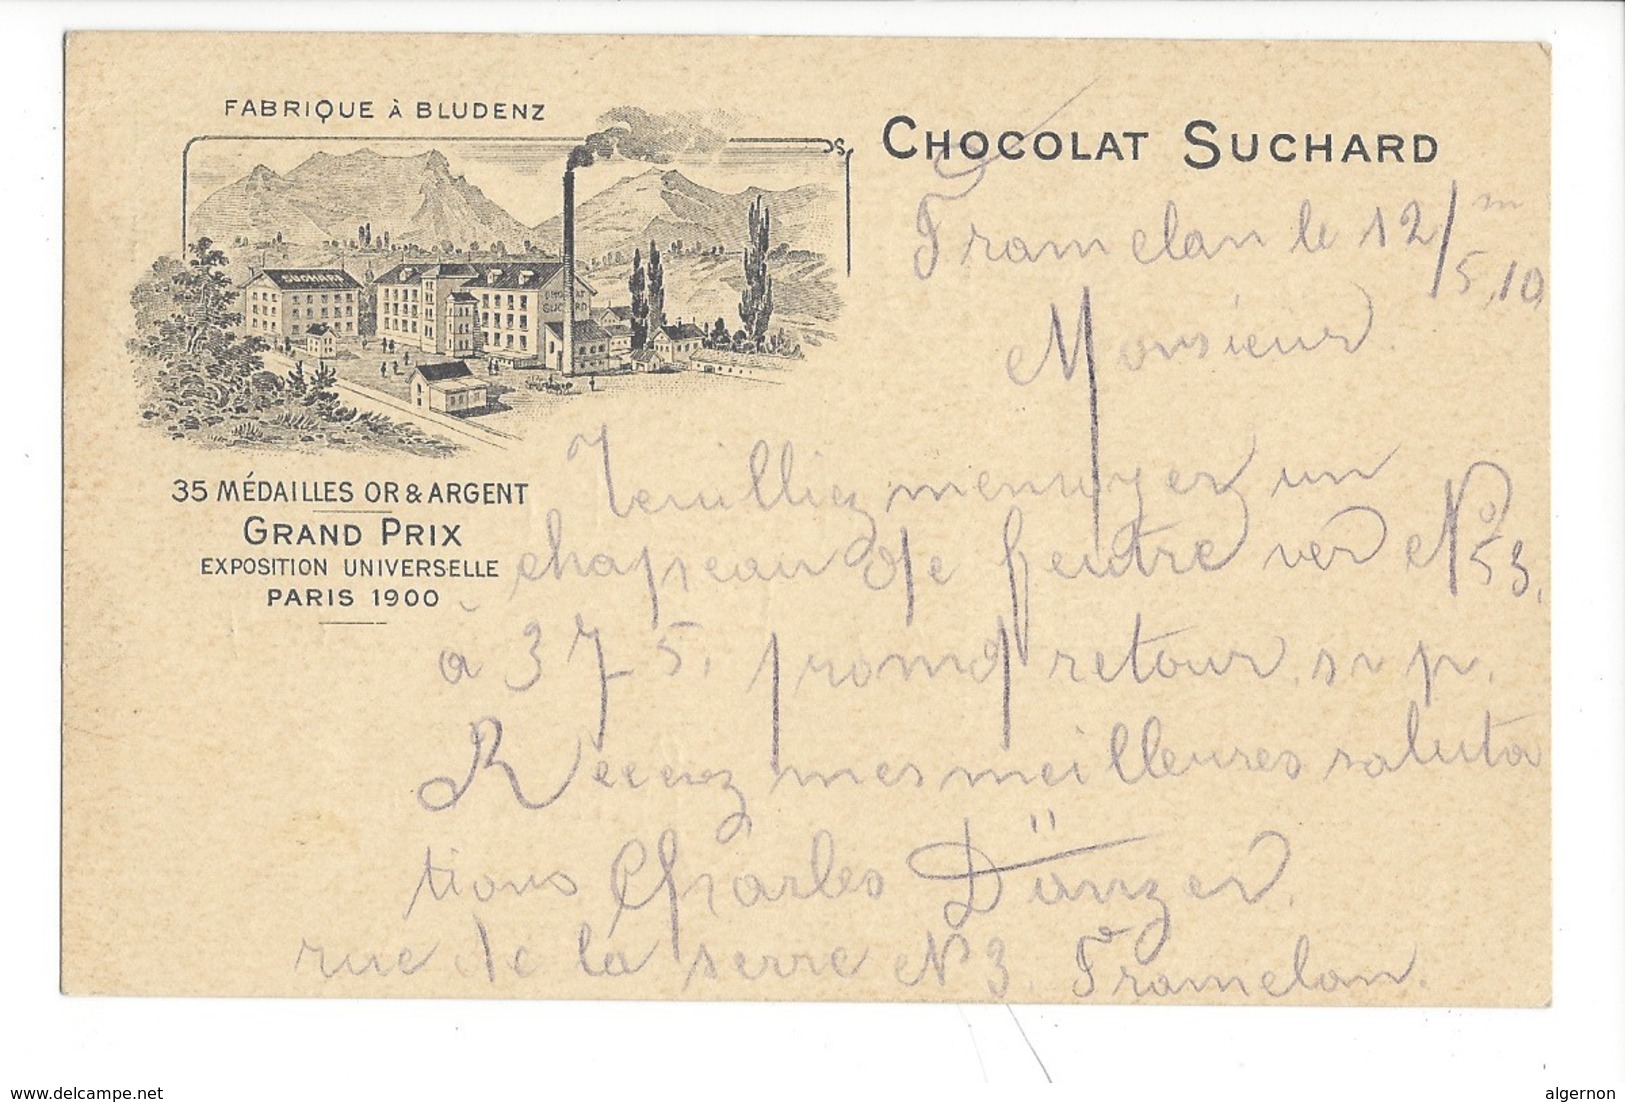 FABRIQUE À BLUDENZ
CHOCOLAT SUCHARD
SUCHARD
CHOCOLAT
SUCHARD
Tramelan le 12/5,10,
Monsieur
35 MÉDAILLES OR & ARGENT
GRAND PRIX
EXPOSITION UNIVERSELLE
PARIS 1900
Veuilliez menvoyer un
chapeau de feutre ver No 53,
à 375. promp retour, svp.
Recevez mes meilleures saluta
tions Charles Dänzer.
rue de la serre N 3. Tramelan.
www.delcampe.net
algernon